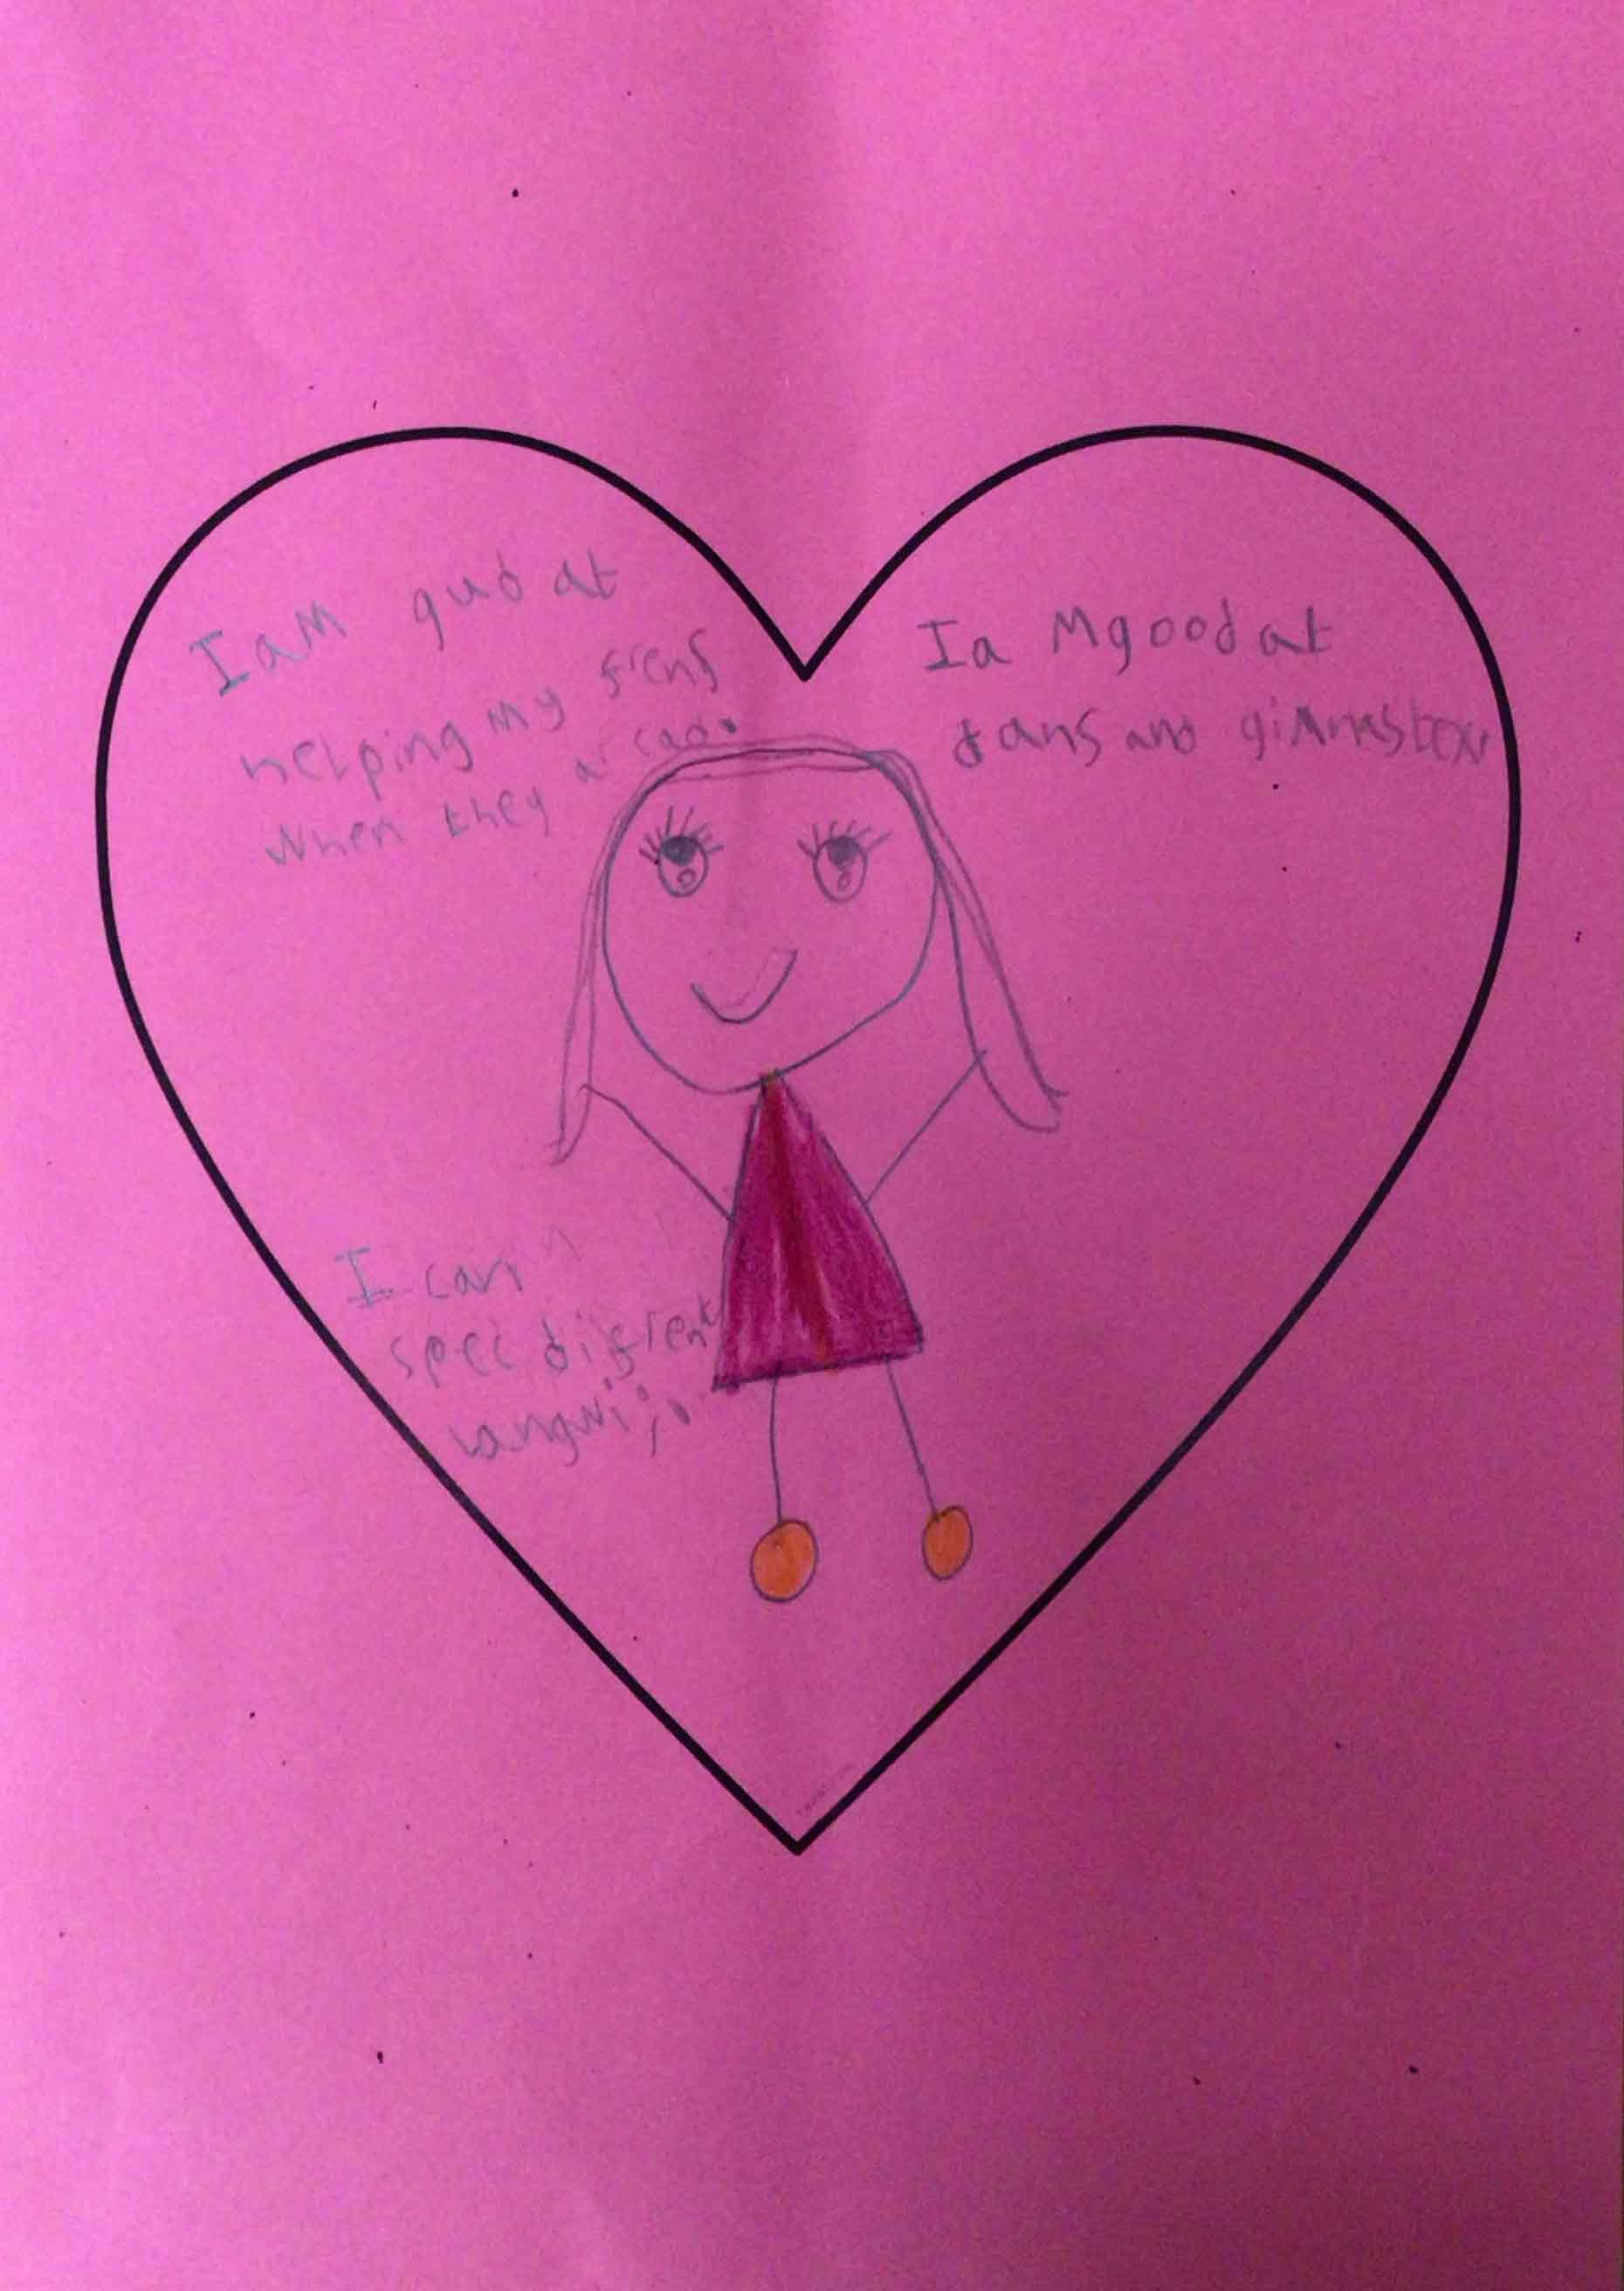 I am gud at
helping my frens
when they ar sad.
Ia Mgood at
dans and gimnastex
I can
spec diferent